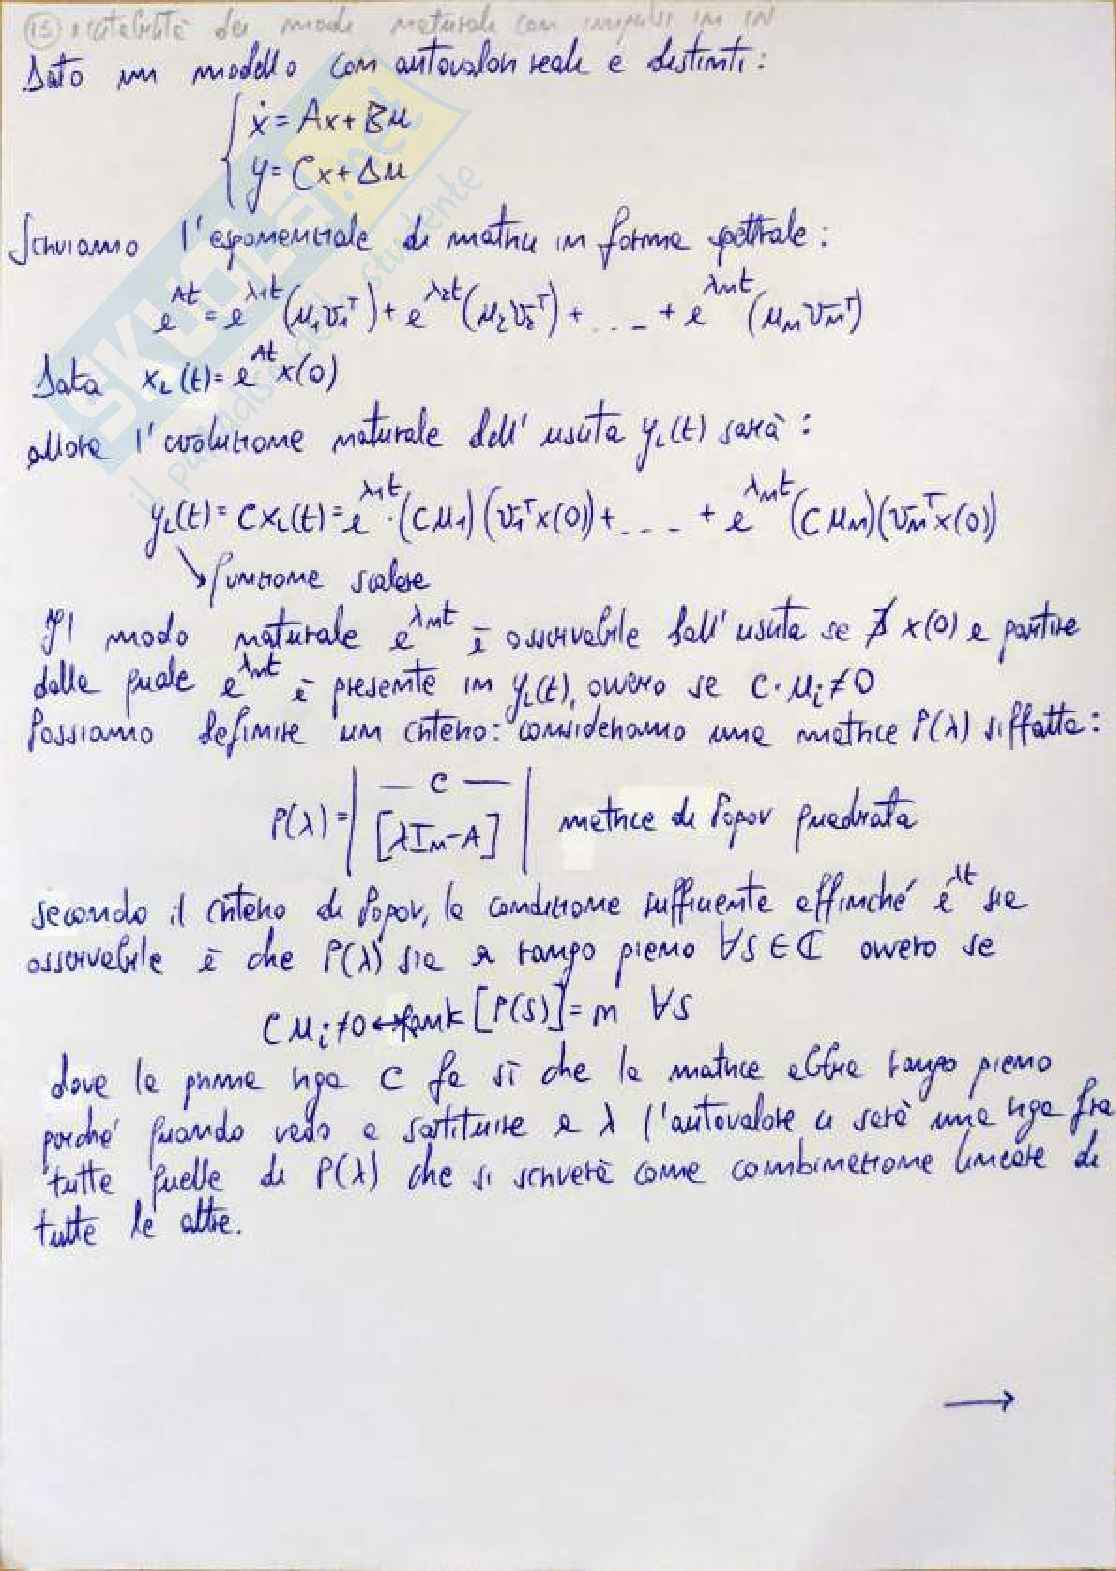 (15) eccitabilità dei modi naturali con impulsi in IN
Dato un modello con autovalori reali e distinti:
ẋ = Ax + Bu
y = Cx + Δu
Scriviamo l'esponenziale di matrice in forma spettrale:
e^{At} = e^{λ1t}(u₁v₁ᵀ) + e^{λ2t}(u₂v₂ᵀ) + .... + e^{λnt}(uₙvₙᵀ)
Data x_L(t) = e^{At} x(0)
allora l'evoluzione naturale dell'uscita y_L(t) sarà:
y_L(t) = C x_L(t) = e^{λ1t}·(Cu₁)(v₁ᵀx(0)) + .... + e^{λnt}(Cuₙ)(vₙᵀx(0))
↘ funzione scalare
Il modo naturale e^{λnt} è osservabile dall'uscita se ∃ x(0) a partire
dalla quale e^{λnt} è presente in y_L(t), ovvero se C·u_i ≠ 0
Possiamo definire un criterio: consideriamo una matrice P(λ) siffatta:
P(λ) = | — C — |
[λIn-A] matrice di Popov quadrata
secondo il criterio di Popov, la condizione sufficiente affinché e^{λt} sia
osservabile è che P(λ) sia a rango pieno ∀s ∈ ℂ ovvero se
Cu_i ≠ 0 ↔ rank [P(s)] = n ∀s
dove la prima riga C fa sì che la matrice abbia rango pieno
perché quando vado a sostituire a λ l'autovalore ci sarà una riga fra
tutte quelle di P(λ) che si scriverà come combinazione lineare di
tutte le altre.
→
SKUOLA.net
il paradiso dello studente